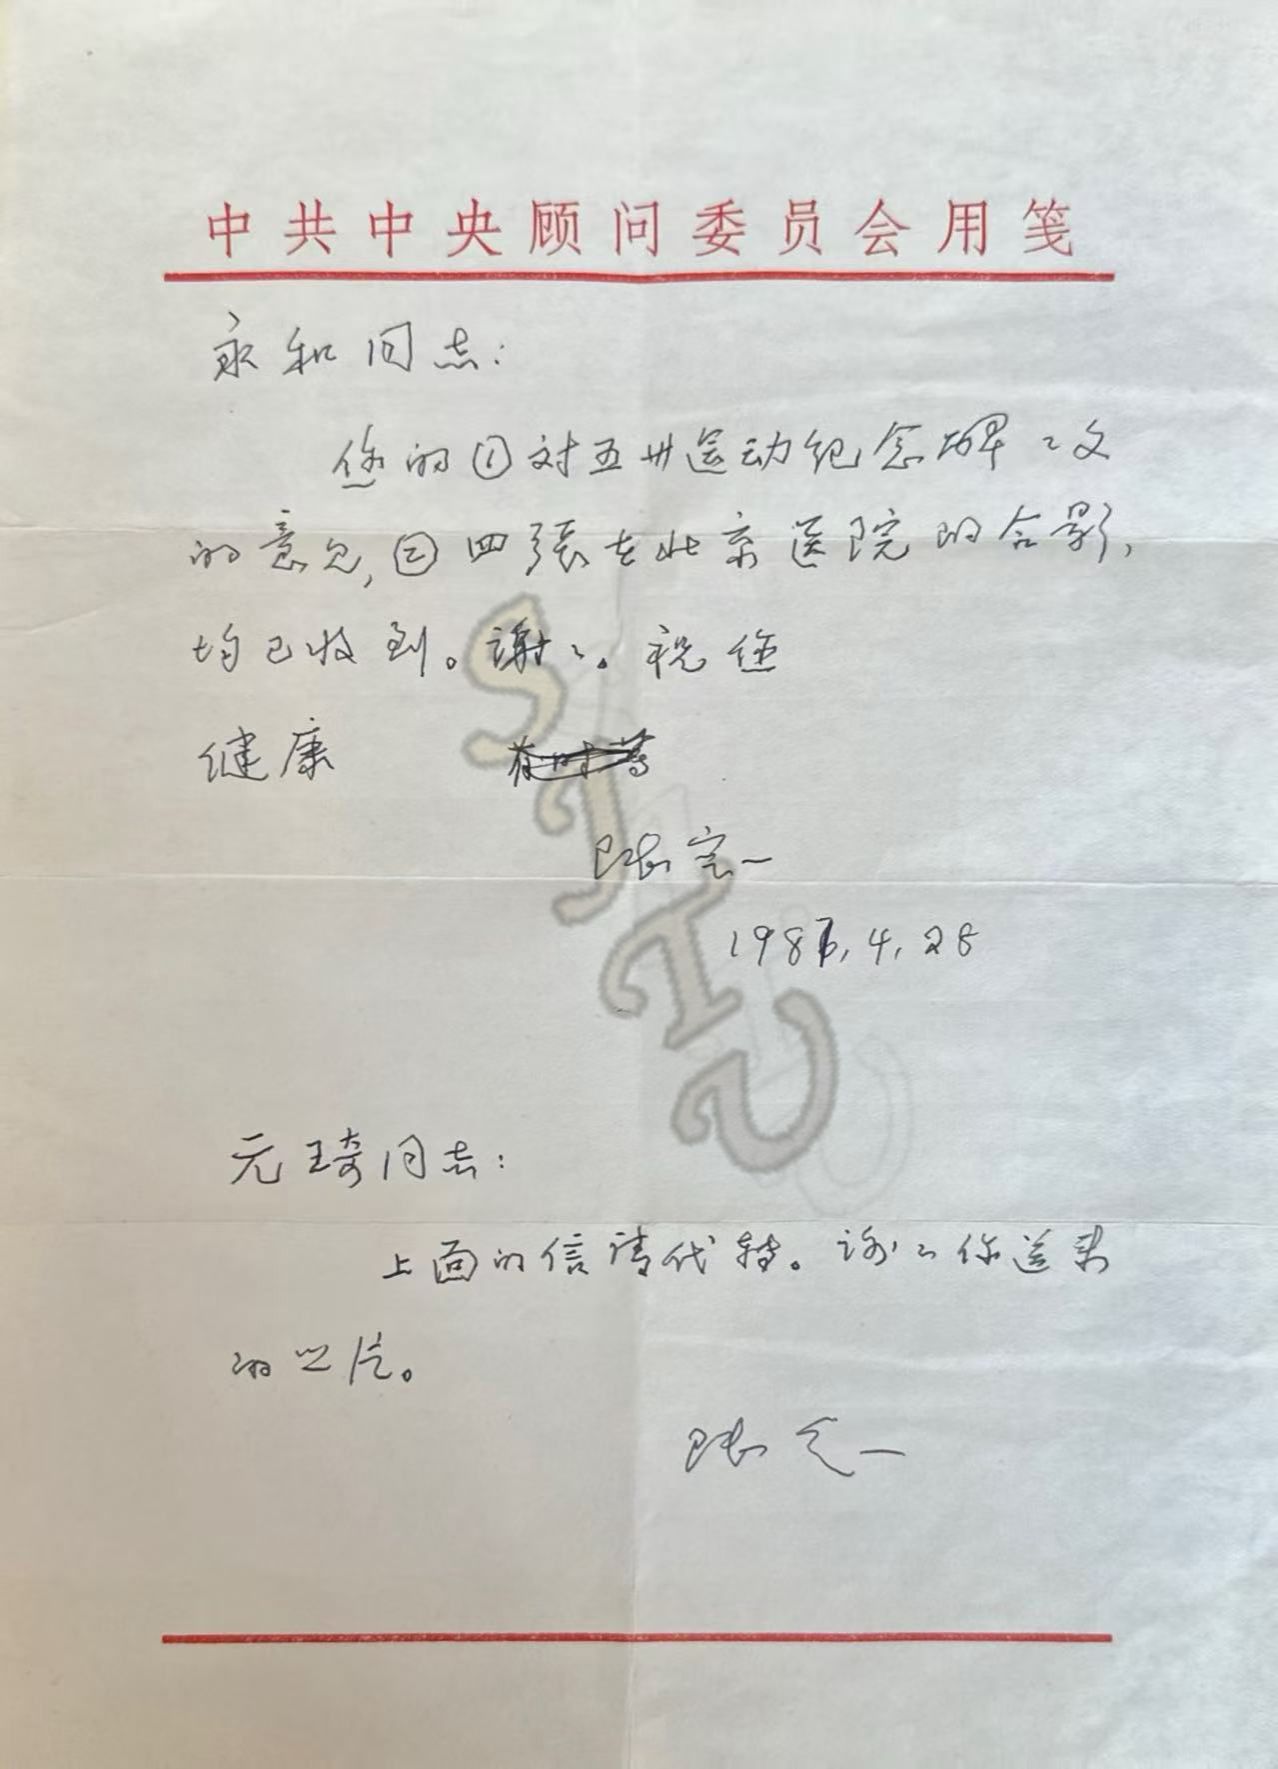 中共中央顾问委员会用笺
永和同志：
您的①对五卅运动纪念碑碑文
的意见，②四張在北京医院的合影，
均已收到。谢谢。祝您
健康
陆定一
1987.4.28
元琦同志：
上面的信请代转。谢谢你送来
的照片。
陆定一